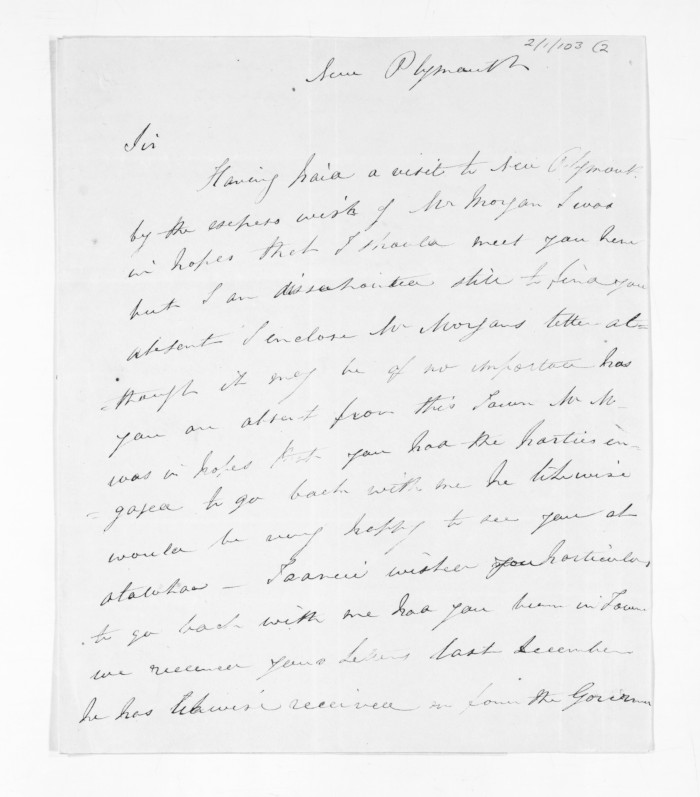 2/1/103 (2
New Plymouth
Sir
Having paid a visit to New Plymout.
by the express wish of Mr Morgan I was
in hopes that I should meet you here
but I am dissapointed still to find you
absent I enclose Mr Morgans letter al=
=though it may be of no importace has
you are absent from this Town Mr M-
was in hopes that you had the parties in-
=gaged to go back with me he likewise
would be very happy to see you at
otawhao - wished you particular
to go back with me had you been in Town
we received yours Letters last December
he has likewise received on from the Governor